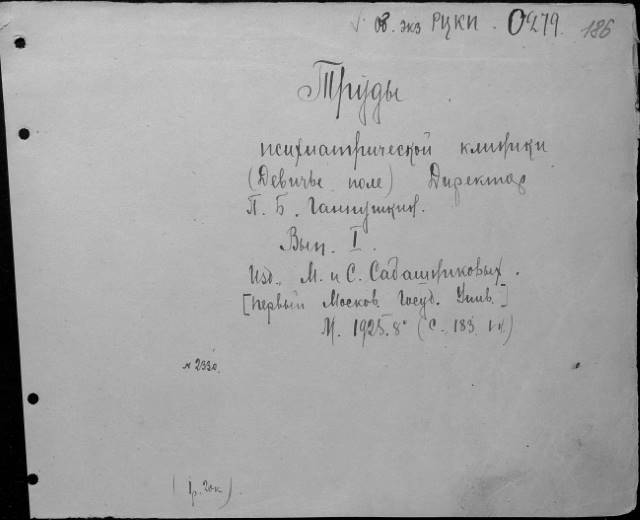 об. экз РЦКП. 0279. 186
Труды
психиатрической клиники
(Девичье поле) Директор
П. Б. Ганнушкин.
Вып. I.
Изд. М. и С. Сабашниковых.
[Первый Москов. Госуд. Унив.]
М. 1925. 8° (с. 183.
№ 2330
(1р. 20к.)